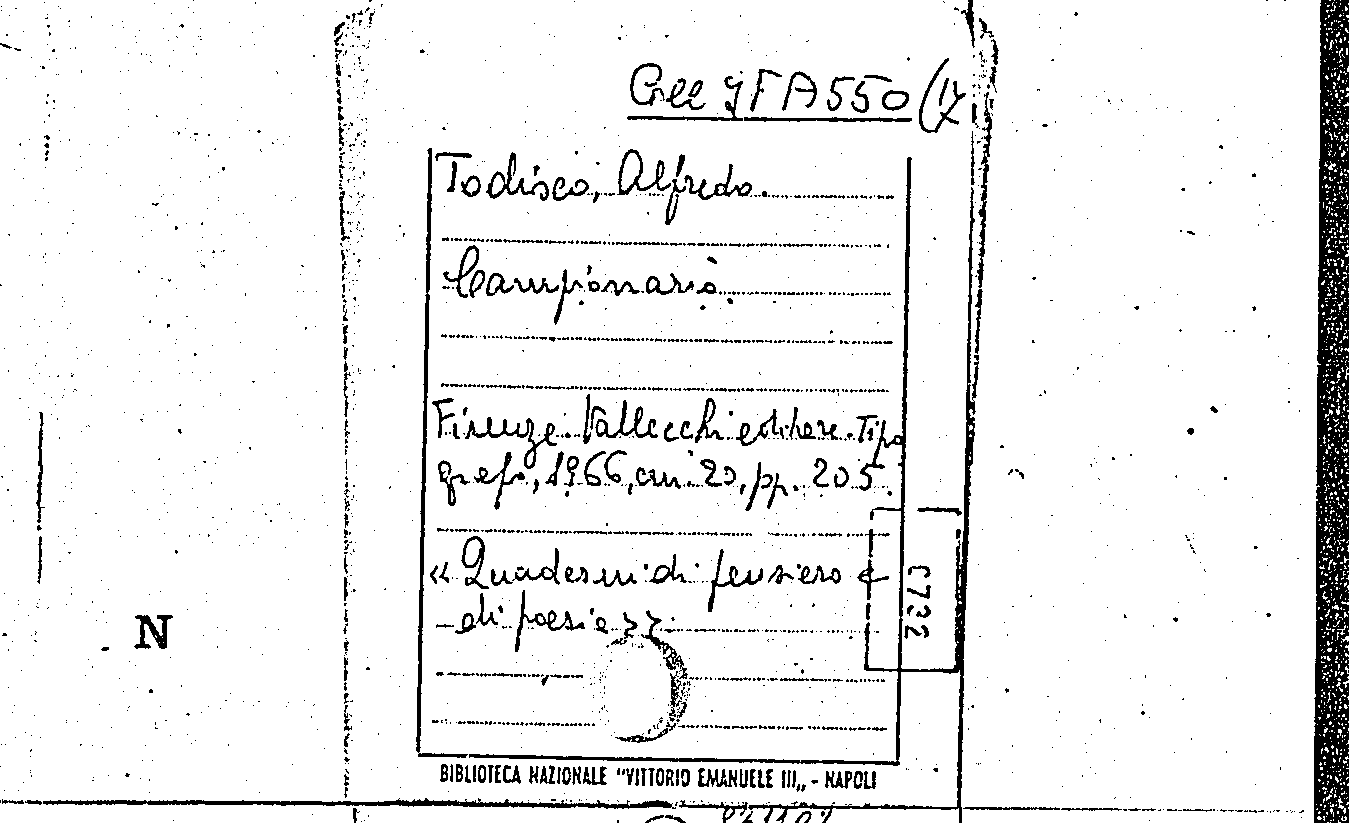 Coll. IFA 550 (17
Todisco, Alfredo.
Campionario.
Firenze. Vallecchi editore. Tipo
graf., 1966, cm. 20, pp. 205.
« Quaderni di pensiero e
di poesia »
C732
N
BIBLIOTECA NAZIONALE "VITTORIO EMANUELE III„ - NAPOLI